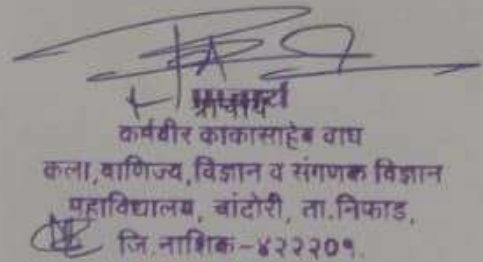 प्राचार्य
कर्मवीर काकासाहेब वाघ
कला,वाणिज्य,विज्ञान व संगणक विज्ञान
महाविद्यालय, चांदोरी, ता.निफाड,
जि.नाशिक-४२२२०१.